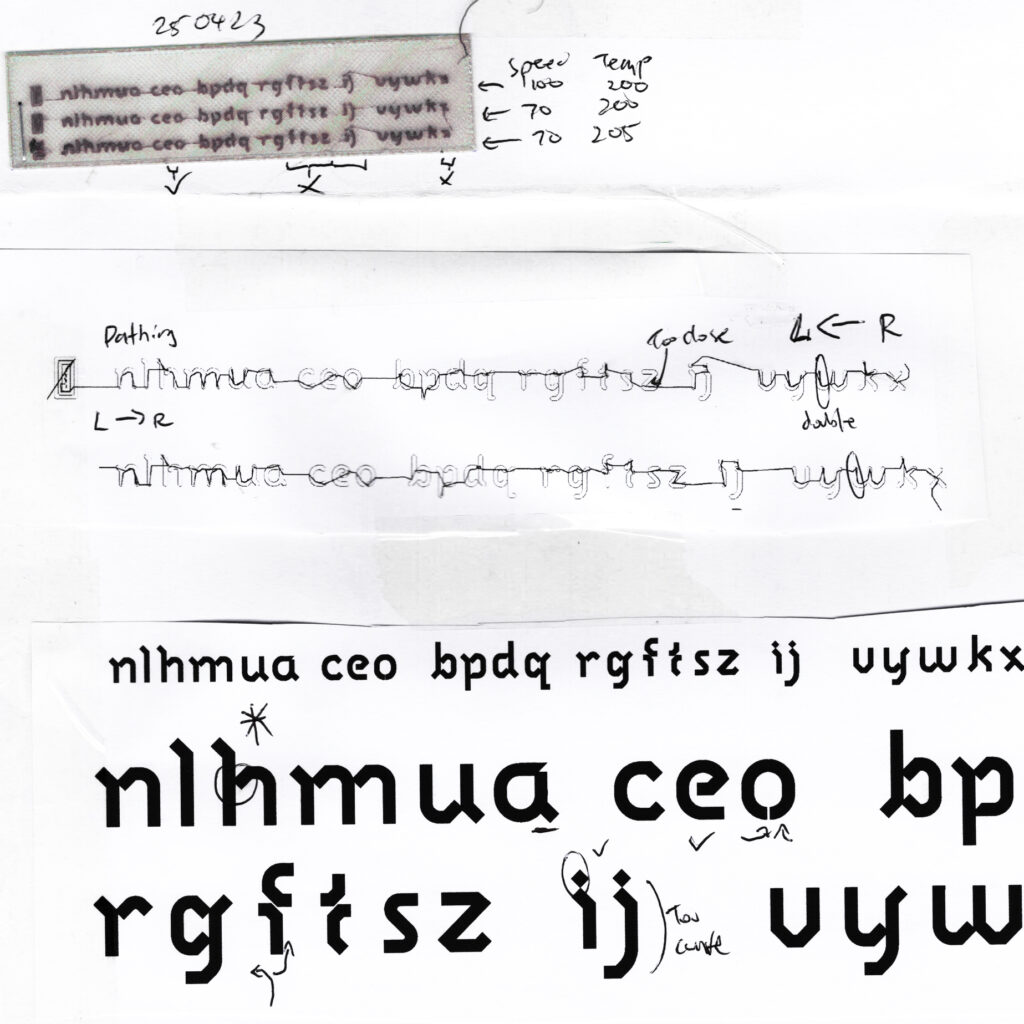 250423
Speed Temp
nlhmua ceo bpdq rgftsz ij vywkx ← 100 200
nlhmua ceo bpdq rgftsz ij vywkx ← 70 200
nlhmua ceo bpdq rgftsz ij vywkx ← 70 205
✓ x x
Pathing
To close
L ← R
nlhmua ceo bpdq rgftsz ij vywkx
L → R
double
nlhmua ceo bpdq rgftsz ij vywkx
nlhmua ceo bpdq rgftsz ij vywkx
nlhmua ceo bp
rgftsz ij vyw
Too